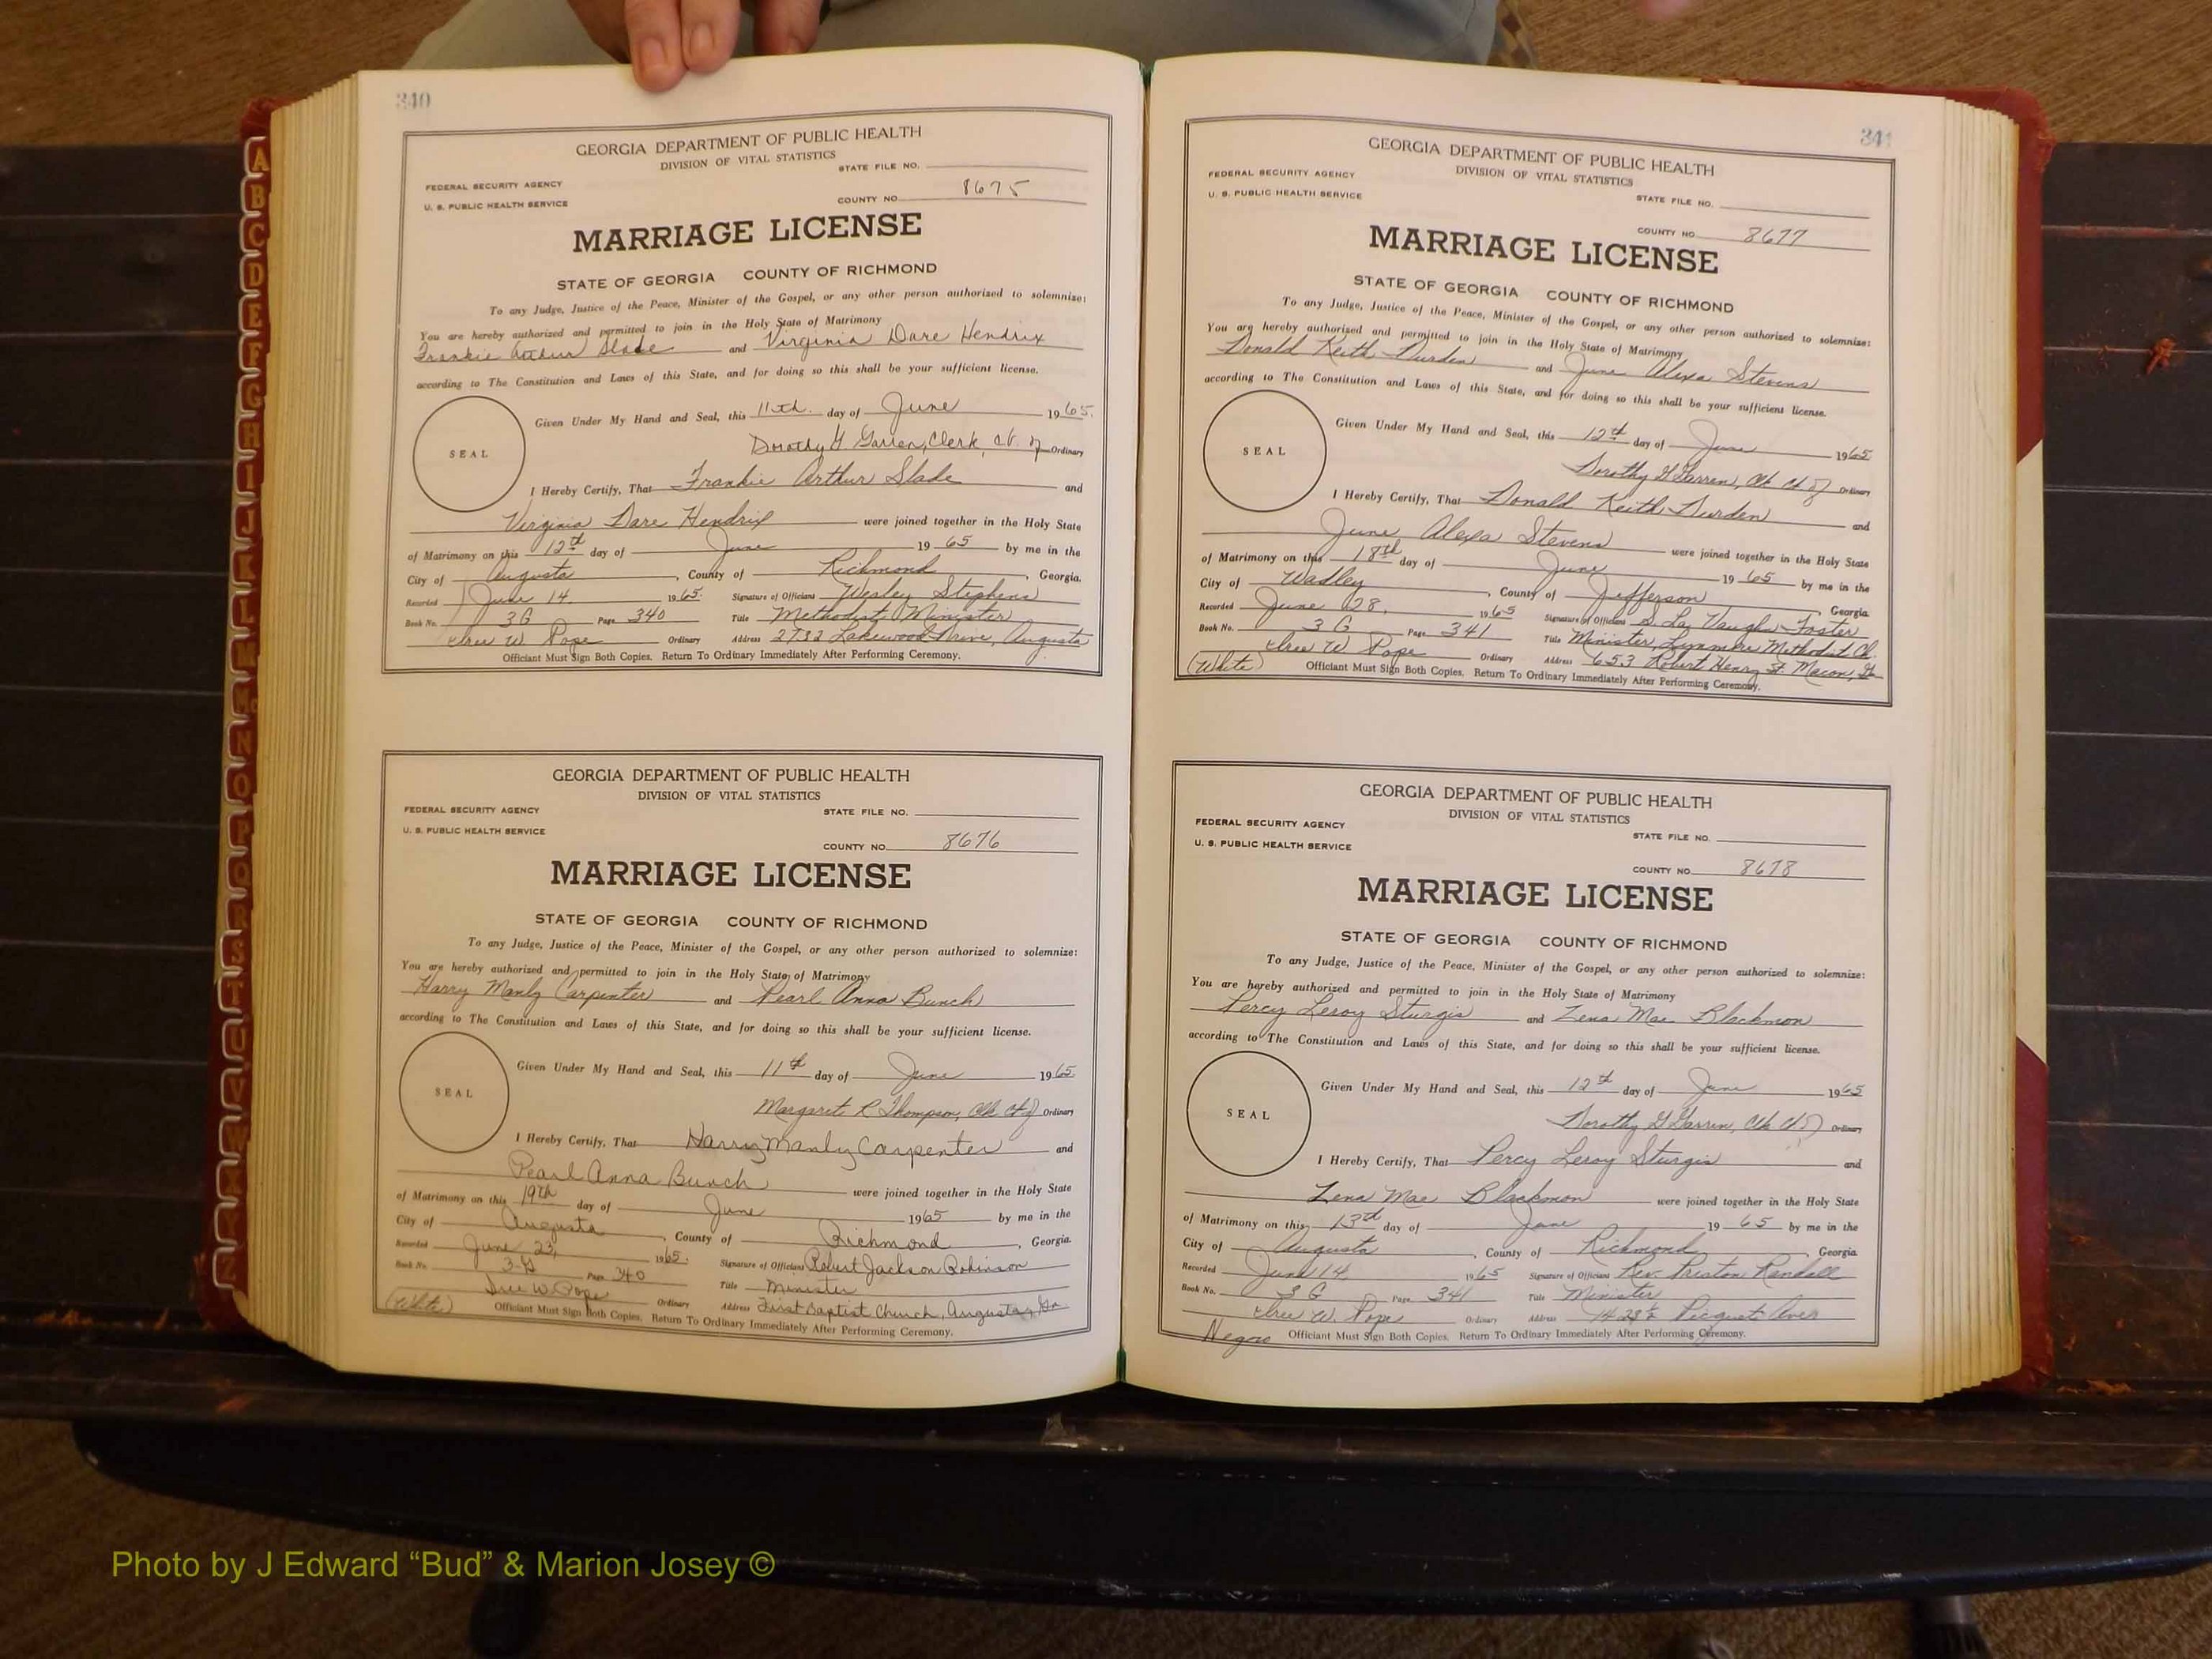 340
GEORGIA DEPARTMENT OF PUBLIC HEALTH
DIVISION OF VITAL STATISTICS
STATE FILE NO.
FEDERAL SECURITY AGENCY
U. S. PUBLIC HEALTH SERVICE
COUNTY NO. 8675
MARRIAGE LICENSE
STATE OF GEORGIA COUNTY OF RICHMOND
To any Judge, Justice of the Peace, Minister of the Gospel, or any other person authorized to solemnize:
You are hereby authorized and permitted to join in the Holy State of Matrimony
Frankie Arthur Slade and Virginia Dare Hendrix
according to The Constitution and Laws of this State, and for doing so this shall be your sufficient license.
SEAL
Given Under My Hand and Seal, this 11th. day of June 1965.
Dorothy G. Garren, Clerk, Ct. of Ordinary
I Hereby Certify, That Frankie Arthur Slade and
Virginia Dare Hendrix were joined together in the Holy State
of Matrimony on this 12th day of June 1965 by me in the
City of Augusta, County of Richmond, Georgia.
Recorded June 14 1965. Signature of Officiant Wesley Stephens
Book No. 3G Page 340 Title Methodist Minister
W. Pope Ordinary Address 2732 Lakewood Drive, Augusta
Officiant Must Sign Both Copies. Return To Ordinary Immediately After Performing Ceremony.
GEORGIA DEPARTMENT OF PUBLIC HEALTH
DIVISION OF VITAL STATISTICS
FEDERAL SECURITY AGENCY
STATE FILE NO.
U. S. PUBLIC HEALTH SERVICE
COUNTY NO. 8676
MARRIAGE LICENSE
STATE OF GEORGIA COUNTY OF RICHMOND
To any Judge, Justice of the Peace, Minister of the Gospel, or any other person authorized to solemnize:
You are hereby authorized and permitted to join in the Holy State of Matrimony
Harry Manly Carpenter and Pearl Anna Bunch
according to The Constitution and Laws of this State, and for doing so this shall be your sufficient license.
SEAL
Given Under My Hand and Seal, this 11th day of June 1965
Margaret R Thompson, Clk Ct of Ordinary
I Hereby Certify, That Harry Manly Carpenter and
Pearl Anna Bunch were joined together in the Holy State
of Matrimony on this 19th day of June 1965 by me in the
City of Augusta, County of Richmond, Georgia.
Recorded June 23, 1965. Signature of Officiant Robert Jackson Robinson
Book No. 3-G Page 340 Title Minister
W. Pope Ordinary Address First Baptist Church, Augusta, Ga.
(White) Officiant Must Sign Both Copies. Return To Ordinary Immediately After Performing Ceremony.
341
GEORGIA DEPARTMENT OF PUBLIC HEALTH
DIVISION OF VITAL STATISTICS
FEDERAL SECURITY AGENCY
U. S. PUBLIC HEALTH SERVICE
STATE FILE NO.
COUNTY NO. 8677
MARRIAGE LICENSE
STATE OF GEORGIA COUNTY OF RICHMOND
To any Judge, Justice of the Peace, Minister of the Gospel, or any other person authorized to solemnize:
You are hereby authorized and permitted to join in the Holy State of Matrimony
Donald Keith Durden and June Alexa Stevens
according to The Constitution and Laws of this State, and for doing so this shall be your sufficient license.
SEAL
Given Under My Hand and Seal, this 12th day of June 1965
Dorothy G Garren, Clk Ct of Ordinary
I Hereby Certify, That Donald Keith Durden and
June Alexa Stevens were joined together in the Holy State
of Matrimony on this 18th day of June 1965 by me in the
City of Wadley, County of Jefferson, Georgia
Recorded June 28, 1965 Signature of Officiant S. La Vaughn Foster
Book No. 3 G Page 341 Title Minister, Methodist Ch.
W Pope Ordinary Address 653 Robert Henry St. Macon, Ga
(White) Officiant Must Sign Both Copies. Return To Ordinary Immediately After Performing Ceremony.
GEORGIA DEPARTMENT OF PUBLIC HEALTH
DIVISION OF VITAL STATISTICS
FEDERAL SECURITY AGENCY
STATE FILE NO.
U. S. PUBLIC HEALTH SERVICE
COUNTY NO. 8678
MARRIAGE LICENSE
STATE OF GEORGIA COUNTY OF RICHMOND
To any Judge, Justice of the Peace, Minister of the Gospel, or any other person authorized to solemnize:
You are hereby authorized and permitted to join in the Holy State of Matrimony
Percy Leroy Sturgis and Lena Mae Blackmon
according to The Constitution and Laws of this State, and for doing so this shall be your sufficient license.
SEAL
Given Under My Hand and Seal, this 12th day of June 1965
Dorothy G Garren, Clk Ct of Ordinary
I Hereby Certify, That Percy Leroy Sturgis and
Lena Mae Blackmon were joined together in the Holy State
of Matrimony on this 13th day of June 1965 by me in the
City of Augusta, County of Richmond, Georgia
Recorded June 14, 1965 Signature of Officiant Rev. Priston Randall
Book No. 3 G Page 341 Title Minister
W. Pope Ordinary Address 1423½ Picquet Aven
Negro Officiant Must Sign Both Copies. Return To Ordinary Immediately After Performing Ceremony.
A
B
C
D
E
F
G
H
I
J
K
L
M
Mc
N
O
P
Q
R
S
T
U
V
W
X Y
Z
Photo by J Edward “Bud” & Marion Josey ©